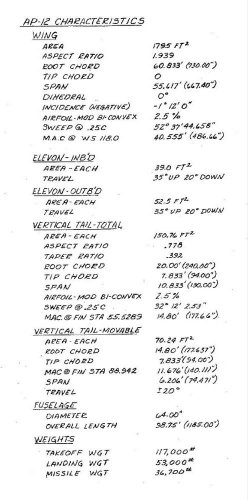 AP-12 CHARACTERISTICS
WING
AREA 1795 FT²
ASPECT RATIO 1.939
ROOT CHORD 60.833' (730.00")
TIP CHORD 0
SPAN 55.617' (667.40")
DIHEDRAL 0°
INCIDENCE (NEGATIVE) -1° 12' 0"
AIRFOIL-MOD BI-CONVEX 2.5 %
SWEEP @ .25C 52° 37' 44.658"
M.A.C @ W.S 118.0 40.555' (486.66")
ELEVON-INB'D
AREA-EACH 39.0 FT²
TRAVEL 35° UP 20° DOWN
ELEVON-OUTB'D
AREA-EACH 52.5 FT²
TRAVEL 35° UP 20° DOWN
VERTICAL TAIL-TOTAL
AREA-EACH 150.76 FT²
ASPECT RATIO .778
TAPER RATIO .392
ROOT CHORD 20.00' (240.00")
TIP CHORD 7.833' (94.00")
SPAN 10.833' (130.00")
AIRFOIL-MOD BI-CONVEX 2.5 %
SWEEP @ .25C 32° 12' 2.53"
MAC. @ FIN STA 55.5289 14.80' (177.66")
VERTICAL TAIL-MOVABLE
AREA-EACH 70.24 FT²
ROOT CHORD 14.80' (177.637")
TIP CHORD 7.833' (94.00")
MAC @ FIN STA 88.942 11.676' (140.111")
SPAN 6.206' (74.471")
TRAVEL ±20°
FUSELAGE
DIAMETER 64.00"
OVERALL LENGTH 98.75' (1185.00")
WEIGHTS
TAKEOFF WGT 117,000#
LANDING WGT 53,000#
MISSILE WGT 36,700#